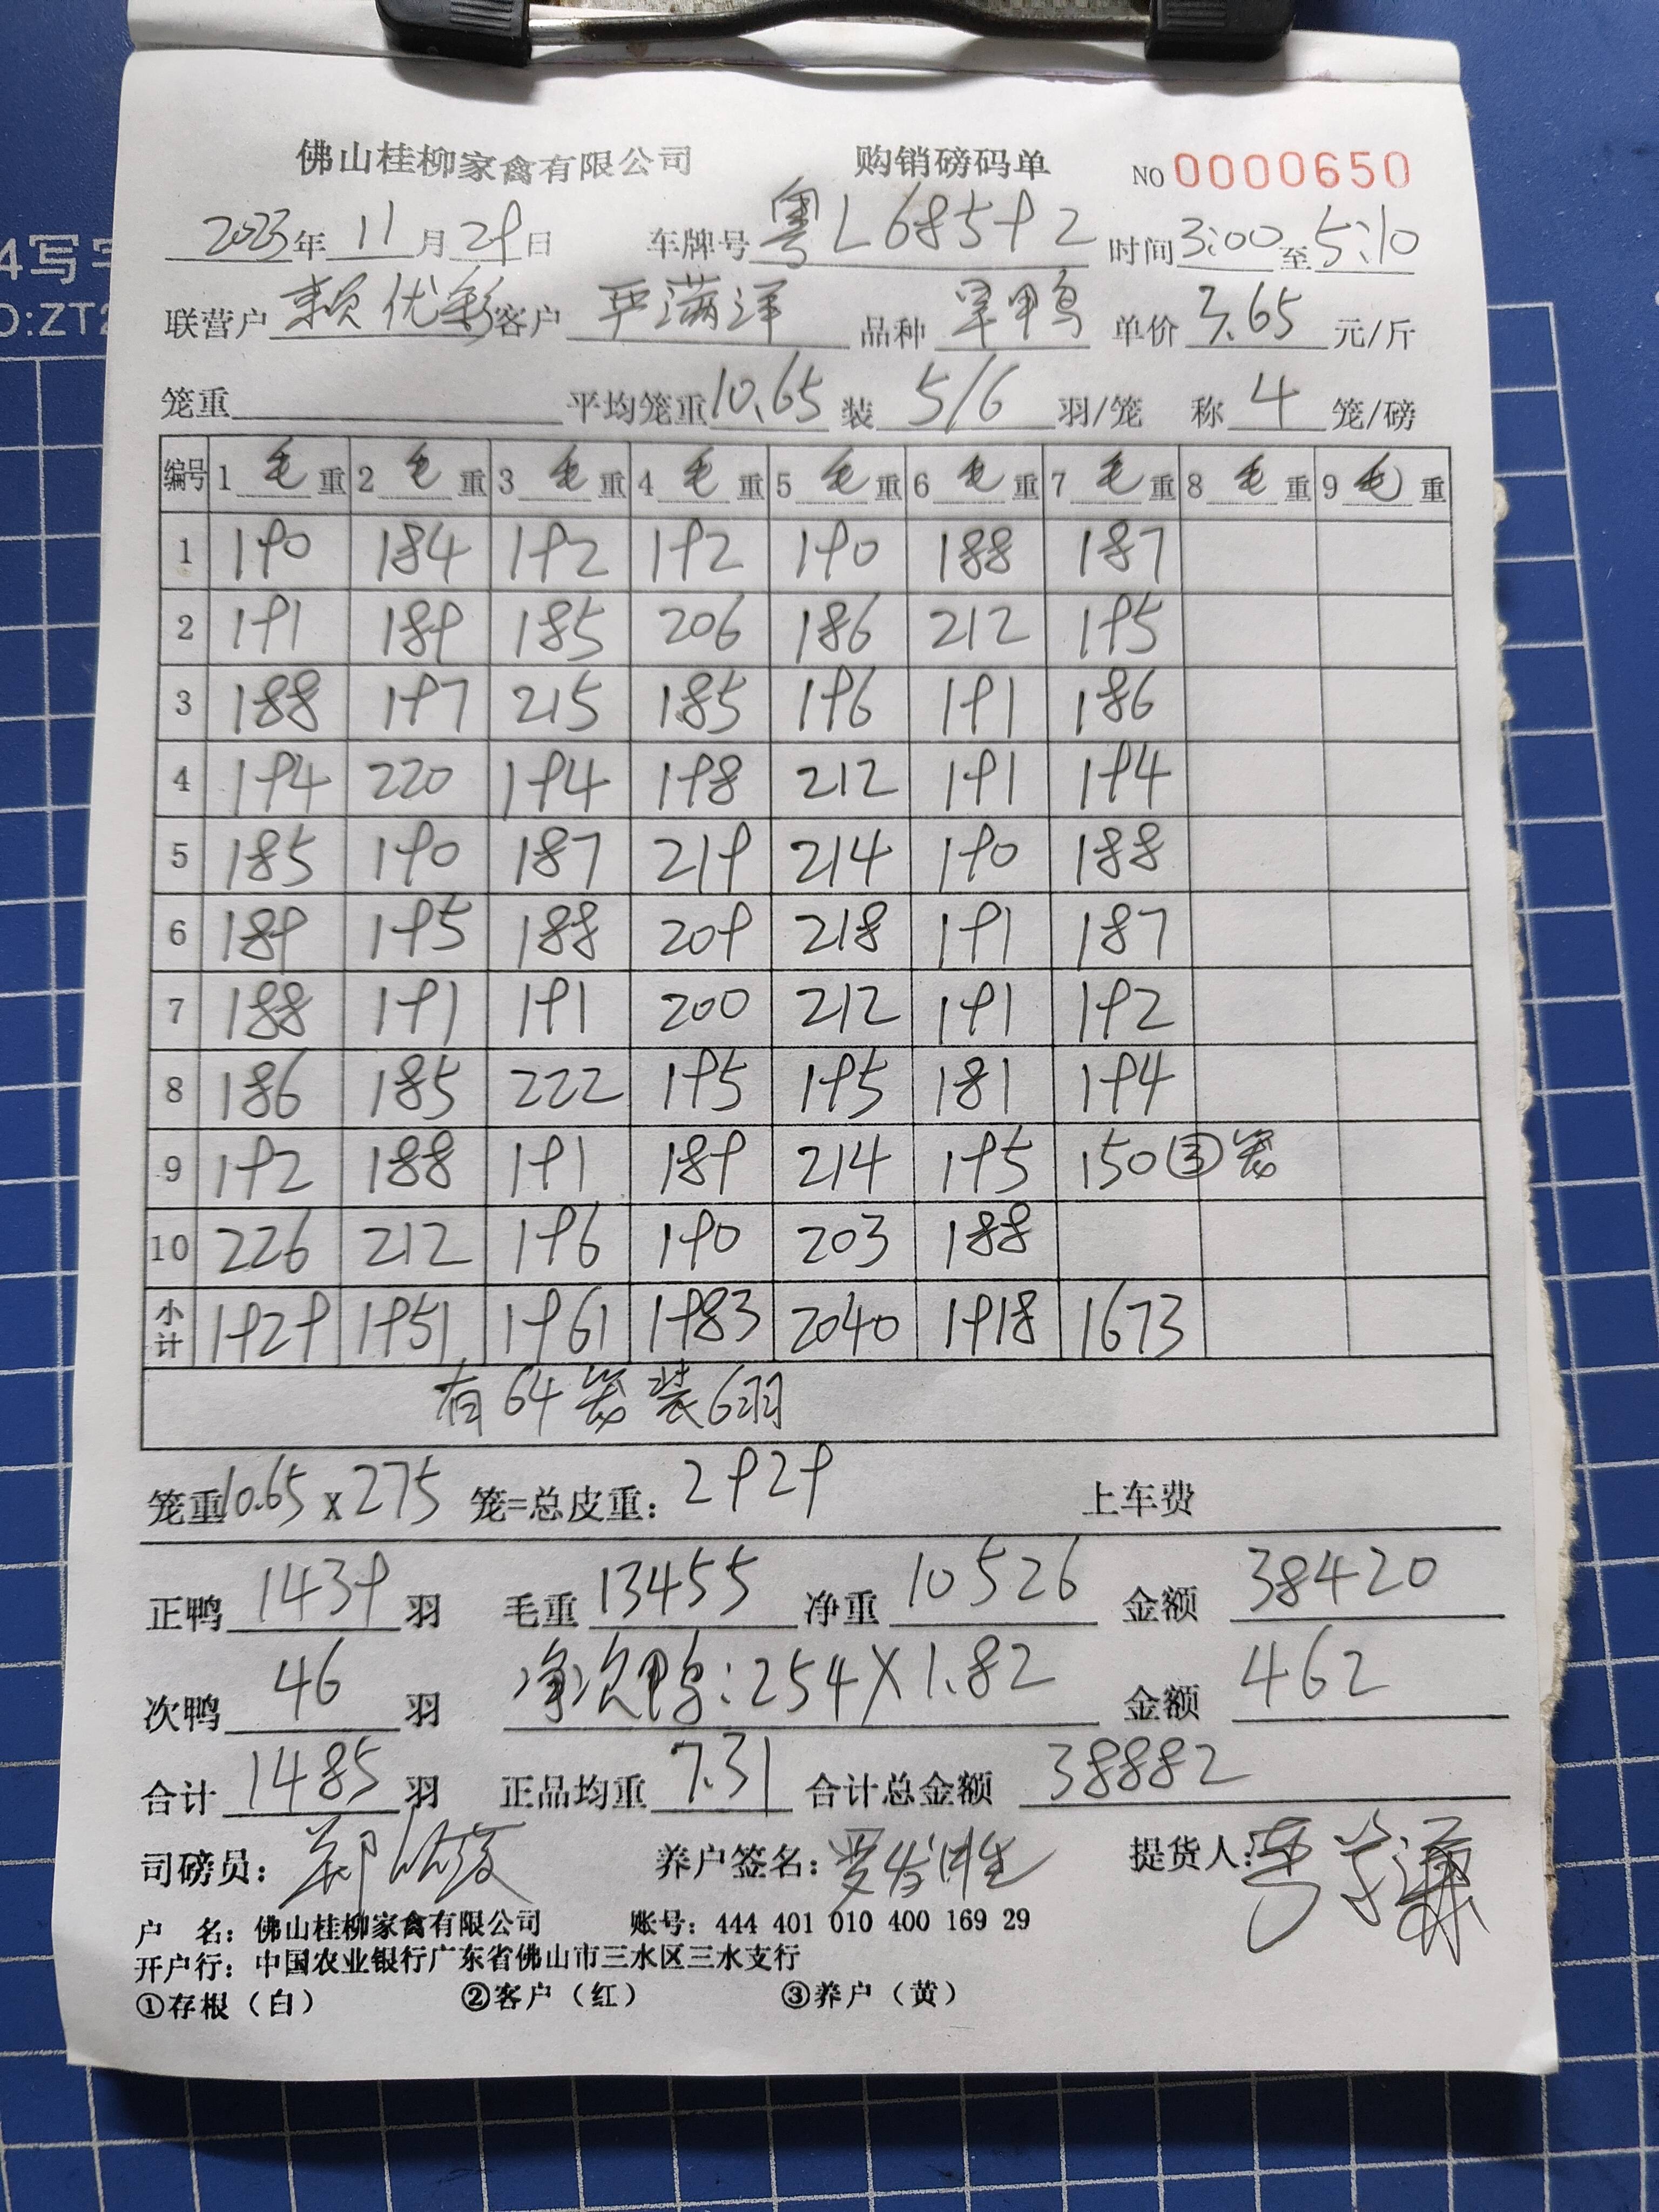 佛山桂柳家禽有限公司 购销磅码单 NO 0000650
2023年 11月 29日 车牌号 粤L68592 时间 3:00 至 5:10
联营户 赖优彩 客户 严满洋 品种 旱鸭 单价 3.65 元/斤
笼重 平均笼重 10.65 装 5/6 羽/笼 称 4 笼/磅
编号 1 毛 重 2 毛 重 3 毛 重 4 毛 重 5 毛 重 6 毛 重 7 毛 重 8 毛 重 9 毛 重
1 190 184 192 192 190 188 187
2 191 189 185 206 186 212 195
3 188 197 215 185 196 191 186
4 194 220 194 198 212 191 194
5 185 190 187 219 214 190 188
6 189 195 188 209 218 191 187
7 188 191 191 200 212 191 192
8 186 185 222 195 195 181 194
9 192 188 191 189 214 195 150 ③笼
10 226 212 196 190 203 188
小计 1929 1951 1961 1983 2040 1918 1673
有64笼装6羽
笼重 10.65 x 275 笼=总皮重: 2929 上车费
正鸭 1439 羽 毛重 13455 净重 10526 金额 38420
次鸭 46 羽 净次鸭:254X1.82 金额 462
合计 1485 羽 正品均重 7.31 合计总金额 38882
司磅员: 养户签名: 提货人:
户 名: 佛山桂柳家禽有限公司 账号: 444 401 010 400 169 29
开户行: 中国农业银行广东省佛山市三水区三水支行
①存根（白） ②客户（红） ③养户（黄）